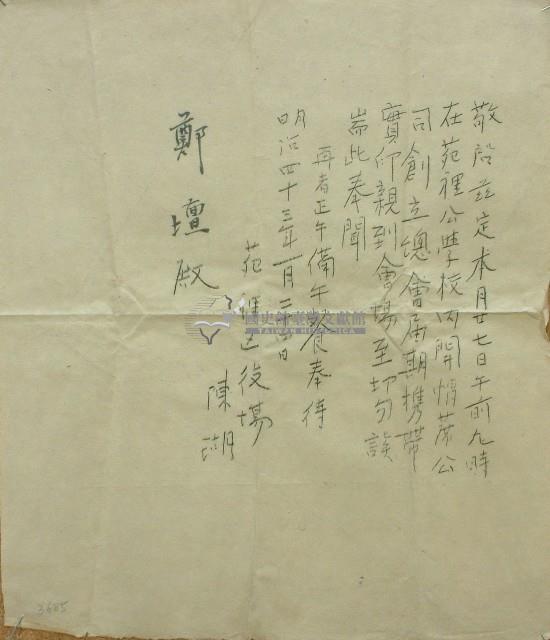 敬啓茲定本月廿七日午前九時
在苑裡公學校內開帽蓆公
司創立總會届期携帶
實印親到會場至切勿誤
耑此奉聞
再者正午備午餐奉待
明治四十三年一月二十四日
苑裡區役場
陳瑚
鄭壇殿
國史館臺灣文獻館
TAIWAN HISTORICA
3605